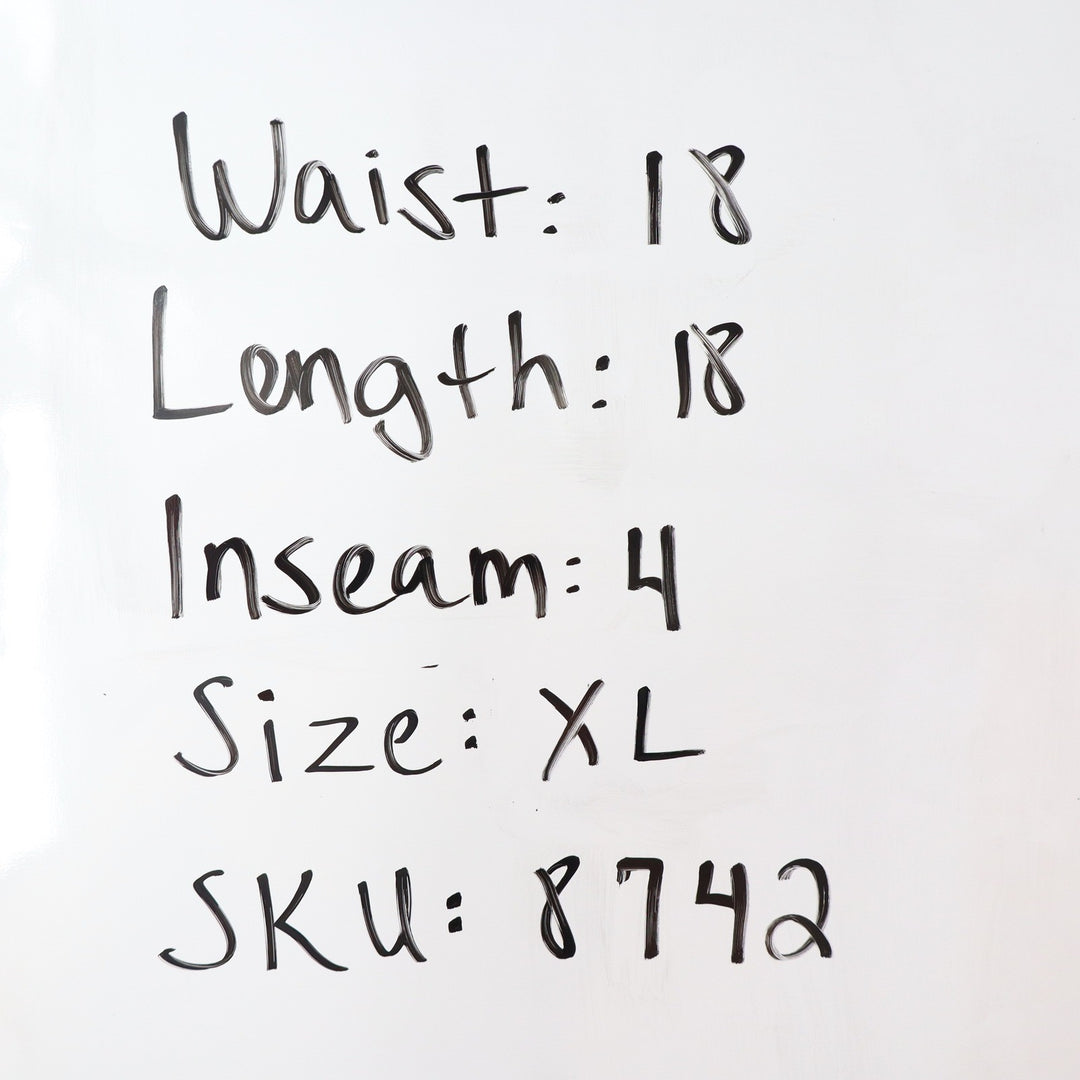 Waist: 18
Length: 18
Inseam: 4
Size: XL
SKU: 8742